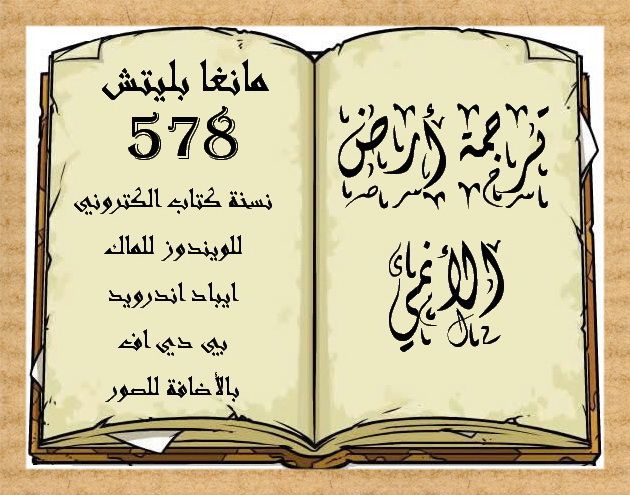 ترجمة أرض
الأنمي
مانغا بليتش
578
نسخة كتاب الكتروني
للويندوز للماك
ايباد اندرويد
بي دي اف
بالأضافة للصور